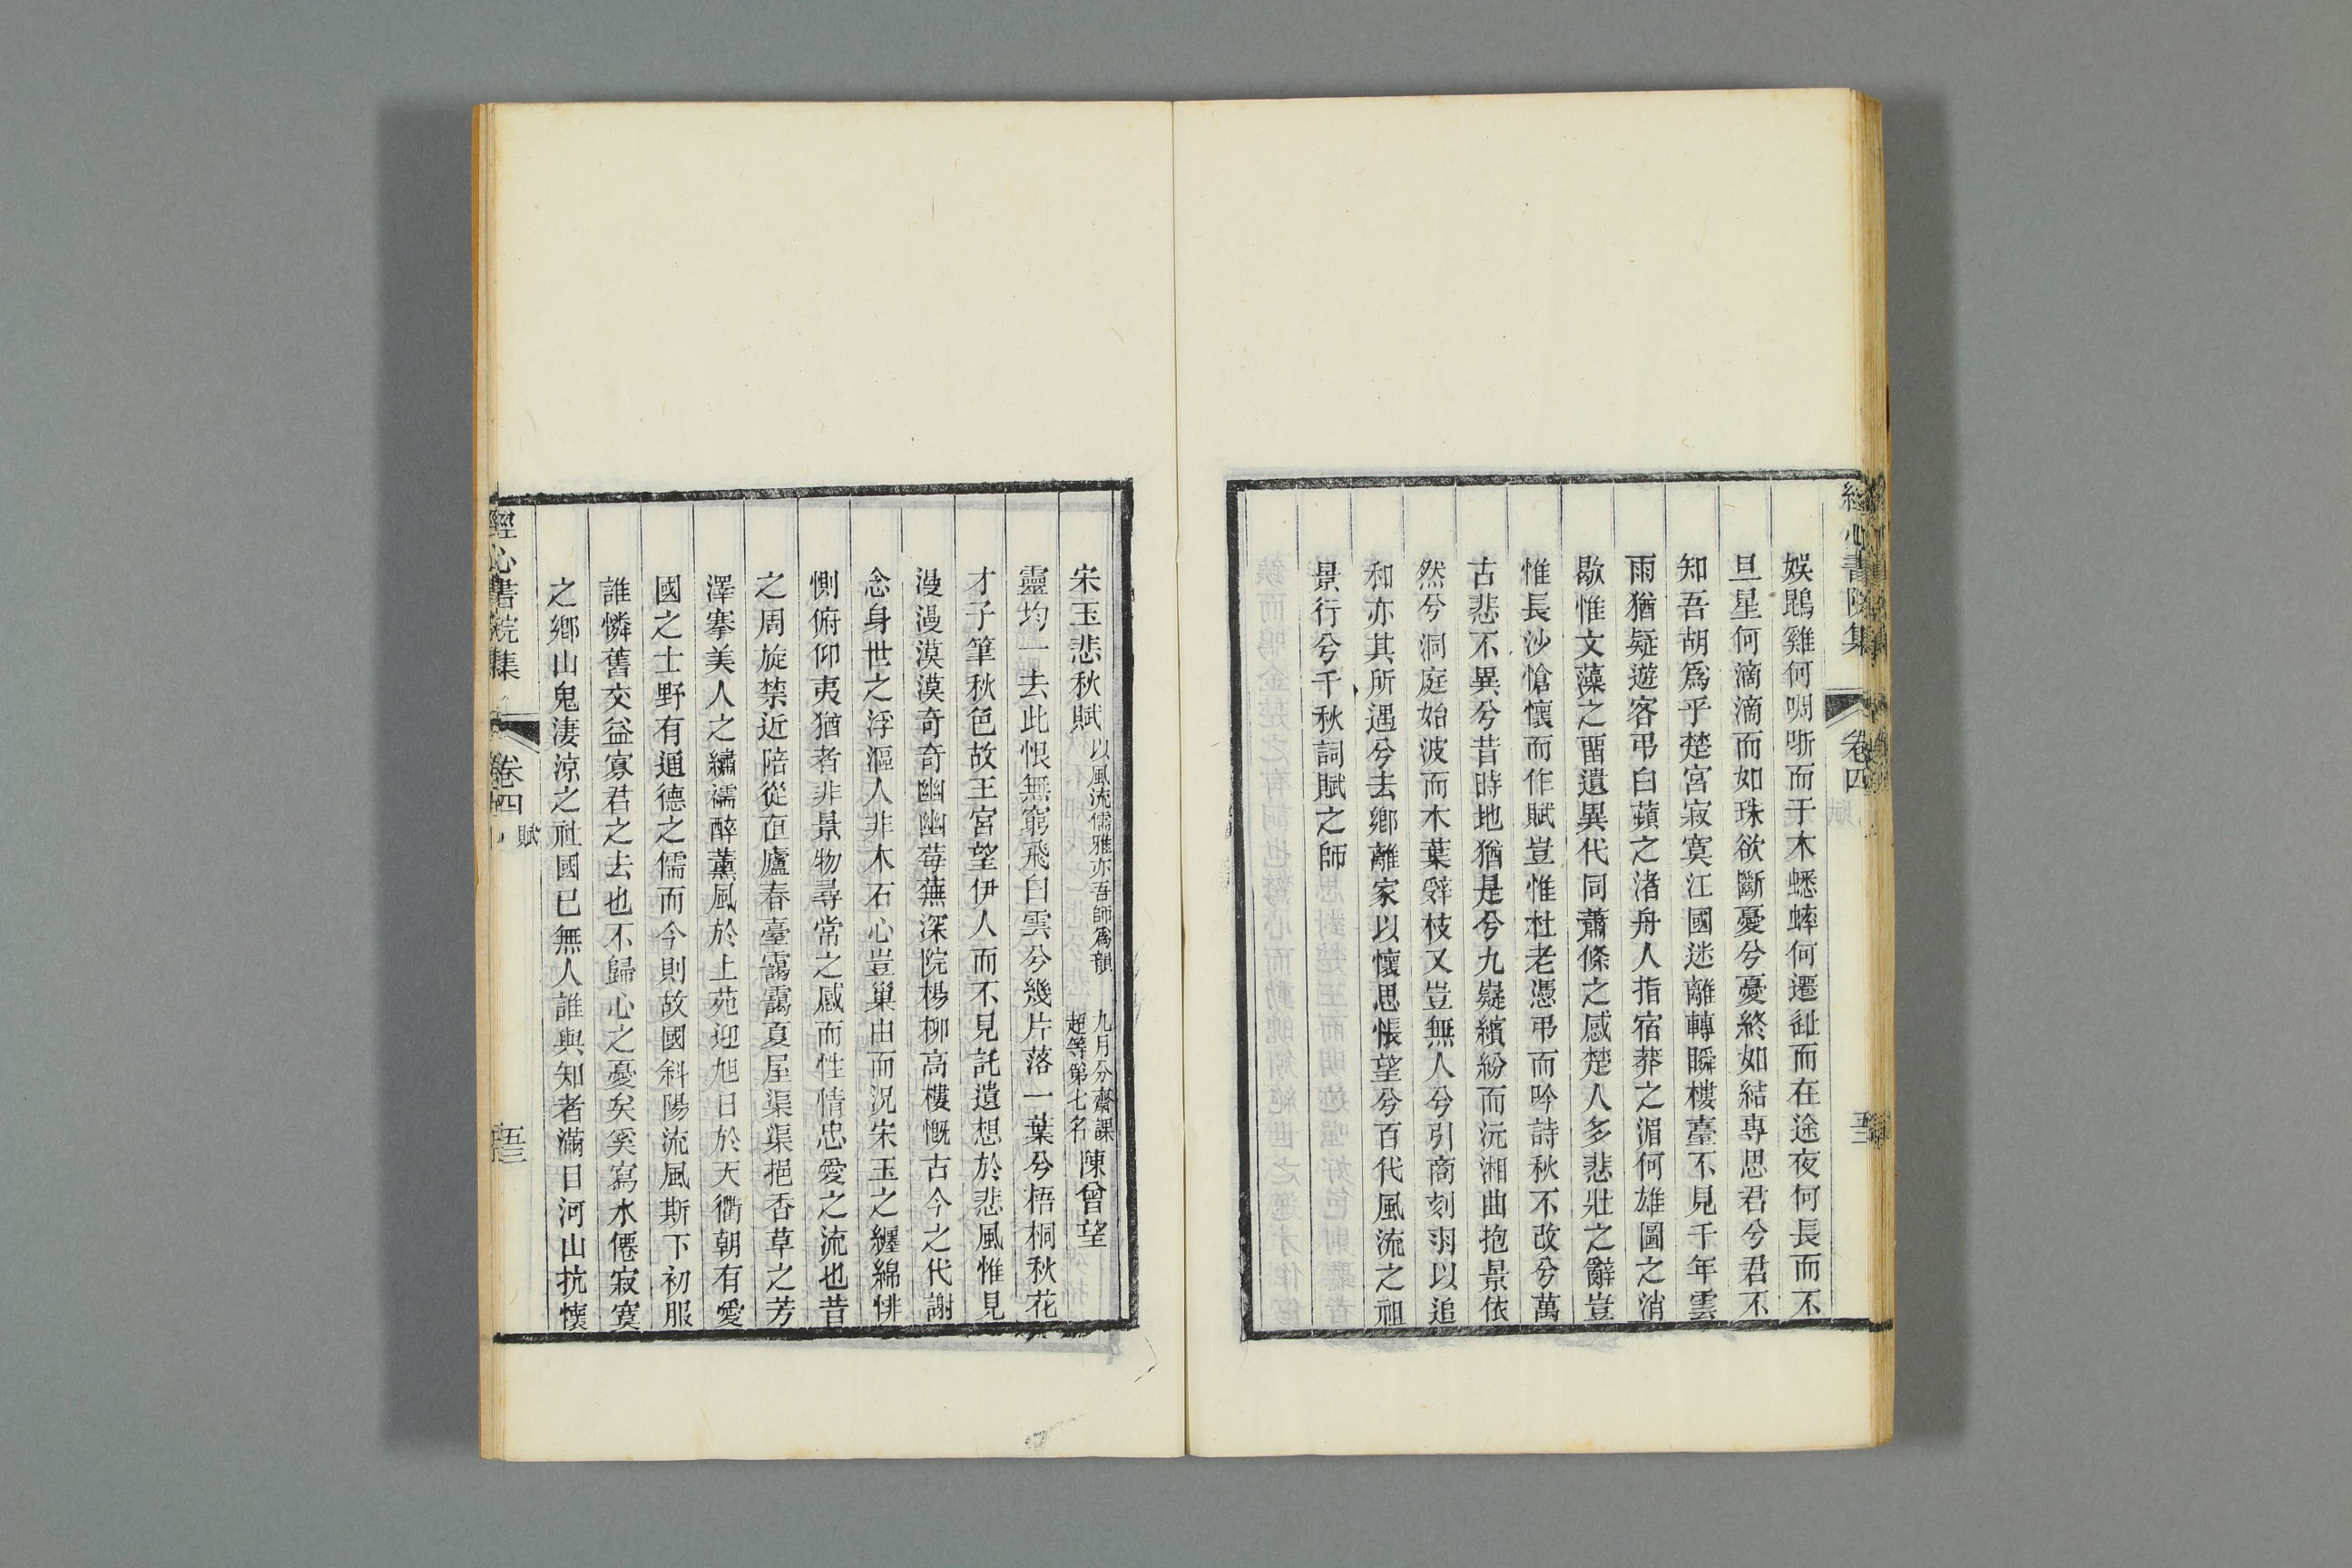 經心書院集
卷四
娛鵾雞何啁哳而于木蟋蟀何遷徙而在途夜何長而不
旦星何滴滴而如珠欲斷憂兮憂終如結專思君兮君不
知吾胡爲乎楚宮寂寞江國迷離轉瞬樓臺不見千年雲
雨猶疑遊客弔白蘋之渚舟人指宿莽之湄何雄圖之消
歇惟文藻之畱遺異代同蕭條之感楚人多悲壯之辭豈
惟長沙愴懷而作賦豈惟杜老憑弔而吟詩秋不改兮萬
古悲不異兮昔時地猶是兮九嶷繽紛而沅湘曲抱景依
然兮洞庭始波而木葉辭枝又豈無人兮引商刻羽以追
和亦其所遇兮去鄉離家以懷思悵望兮百代風流之祖
景行兮千秋詞賦之師
宋玉悲秋賦 以風流儒雅亦吾師爲韻 九月分齋課超等第七名 陳曾望
靈均一去此恨無窮飛白雲兮幾片落一葉兮梧桐秋花
才子筆秋色故王宮望伊人而不見託遺想於悲風惟見
漫漫漠漠奇奇幽幽莓蕪深院楊柳高樓慨古今之代謝
念身世之浮漚人非木石心豈巢由而況宋玉之纏綿悱
惻俯仰夷猶者非景物尋常之感而性情忠愛之流也昔
之周旋禁近陪從直廬春臺靄靄夏屋渠渠挹香草之芳
澤搴美人之繡襦醉薰風於上苑迎旭日於天衢朝有愛
國之士野有通德之儒而今則故國斜陽流風斯下初服
誰憐舊交益寡君之去也不歸心之憂矣奚寫水僊寂寞
之鄉山鬼淒涼之社國已無人誰與知者滿目河山抗懷
經心書院集
卷四
賦
五三